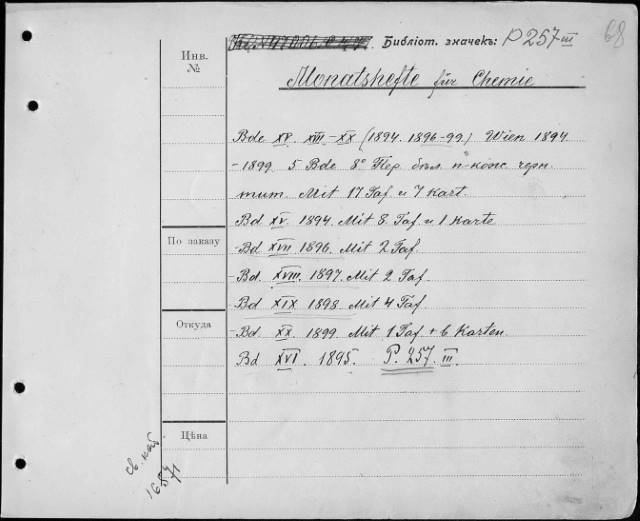 Библіот. значекъ: P 257 III
68
Инв. №
Monatshefte für Chemie
Bde XV. XVII-XX (1894. 1896-99) Wien 1894
-1899 5 Bde 8° Пер. бѣл. п-конс черн.
тит. Mit 17 Taf и 7 Kart.
Bd XV. 1894. Mit 8. Taf и 1 Karte
По заказу
- Bd XVII 1896. Mit 2 Taf.
- Bd. XVIII. 1897. Mit 2 Taf.
- Bd XIX 1898 Mit 4 Taf.
Откуда
- Bd. XX. 1899. Mit 1 Taf. + 6 Karten.
Bd XVI. 1895. P. 257. III.
Цѣна